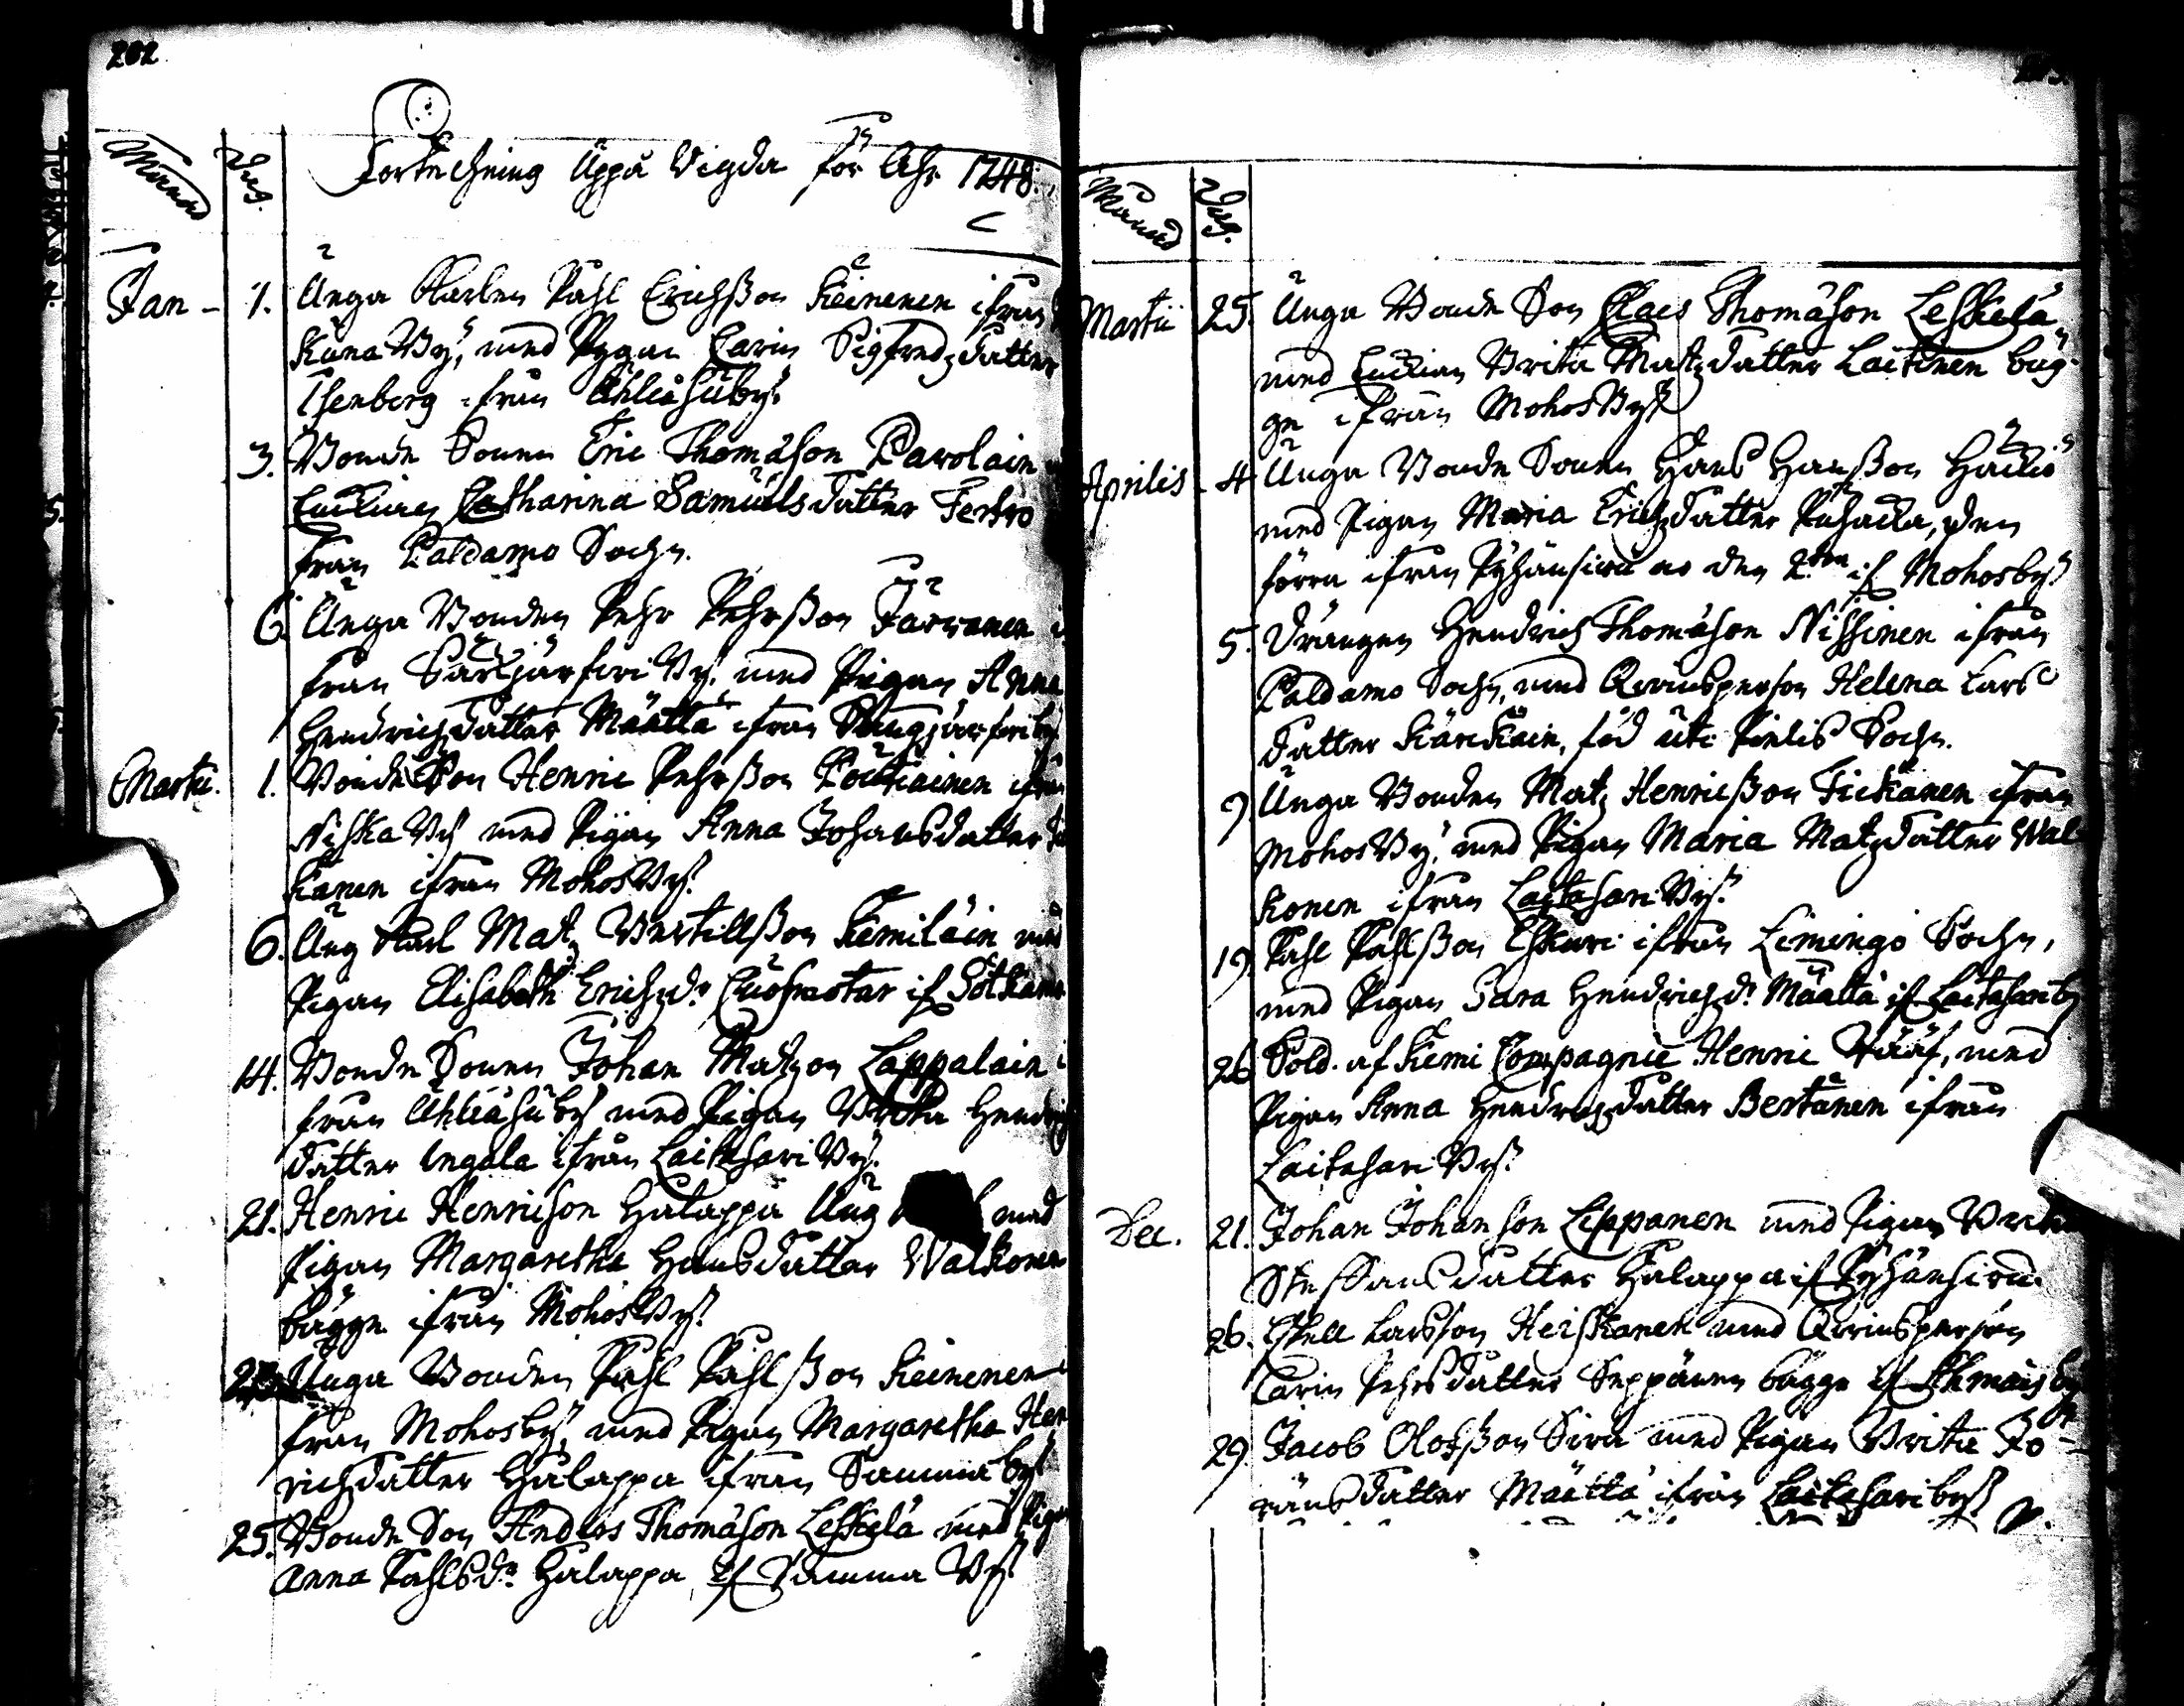 202
Månad
Dag.
Förtekning Uppå Vigda för Åhr 1748.
Jan - 1. Unga Karlen Påhl Erichßon Keinenen ifrån
Kuna By, med Pygan Carin Sigfredzdatter
Isenberg ifrån Uhleåsuby
3. Bonde Sonen Eric Thomäson Parolain
Enckian Catharina Samuelsdatter Terfwo
från Paldamo Sochn.
6. Unga Bonden Pehr Pehrßon Järvanen i
från Särkjärfwi By. med Pigan Anna
Hendrichzdatter Määttä ifrån järfwiby
Martii. 1. Bonde Son Henric Pehrßon Poutiainen ifrån
Niska By med Pigan Anna Johansdatter
kanen ifrån Mohosby
6. Ung Karl Matz Bertillßon Kemiläin med
Pigan Elisabeth Erichzdr if Sotkamo
14. Bonde Sonen Johan Matzon Lappalain i
från Uhleåsuby med Pigan Brita Hendrichz
datter Ungala ifrån Laitasari By.
21. Henric Henricson Halappa Ung med
Pigan Margaretha Hansdatter Walkonen
bägge ifrån Mohosby
Unga Bonden Påhl Påhlßon Keinenen i
från Mohosby, med Pigan Margaretha Hen
richzdatter Halappa ifrån Samma by
25. Bonde Son Anders Thomäson Leskelä med Pigan
Anna Påhlsdr Halappa if Samma By
Månad
Dag.
Martii 25. Unga Bonde Son Claes Thomäson Leskelä
med Enckian Brita Matzdatter Laitinen bäg-
ge ifrån Mohosby
Aprilis - 4 Unga Bonde Sonen Hans Hanßon Hackio
med Pigan Maria Erichzdatter Puhacka, den
förra ifrån Pyhänsivu as den 2dra if Mohosby
5. Drängen Hendrich Thomäson Nissinen ifrån
Paldamo Sochn, med Qvinsperson Helena Lars
datter Kärckäin, föd uti Pielis Sochn.
9. Unga Bonden Matz Henricßon Tickänen ifrån
Mohos By, med Pigan Maria Matzdatter Wal
konen ifrån Laitasari By
19. Påhl Påhlßon Eskuri ifrån Limingo Sochn,
med Pigan Sara Hendrichzdr Määttä if Laitasariby
26 Sold. af Kemi Compagnie Henric Hååf, med
Pigan Anna Hendrichzdatter Bertänen ifrån
Laitasari By
Dec. 21. Johan Johanson Lippanen med Pigan Brita
Steffansdatter Halappa if Pyhänsivu
26. Eskell Larsson Heiskanen med Qvinsperson
Carin Pehrsdatter Seppänen bägge if by
29. Jacob Olofßon Sivu med Pigan Brita Jö-
ransdatter Määttä ifrån Laitasariby